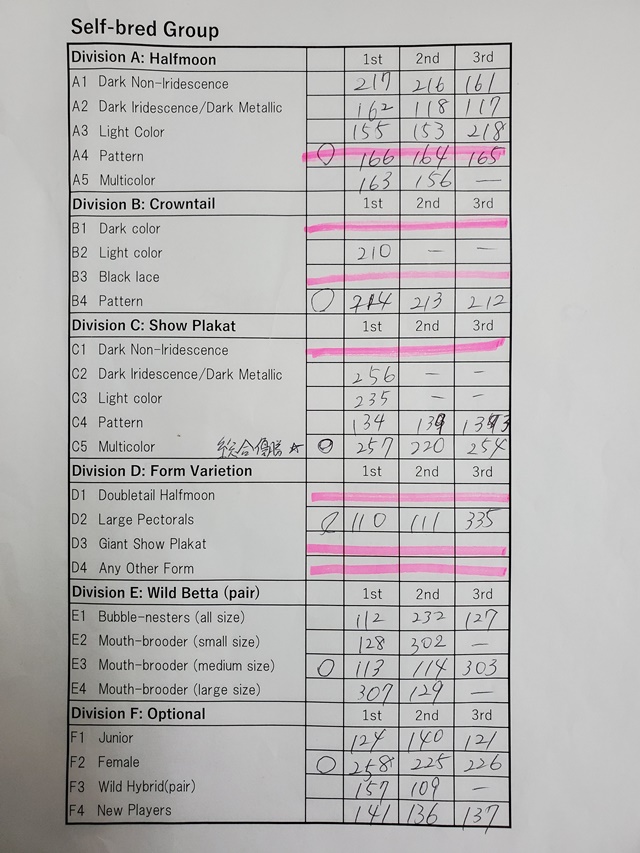 Self-bred Group
Division A: Halfmoon 1st 2nd 3rd
A1 Dark Non-Iridescence 217 216 161
A2 Dark Iridescence/Dark Metallic 162 118 117
A3 Light Color 155 153 218
A4 Pattern ○ 166 164 165
A5 Multicolor 163 156 —
Division B: Crowntail 1st 2nd 3rd
B1 Dark color
B2 Light color 210 — —
B3 Black lace
B4 Pattern ○ 214 213 212
Division C: Show Plakat 1st 2nd 3rd
C1 Dark Non-Iridescence
C2 Dark Iridescence/Dark Metallic 256 — —
C3 Light color 235 — —
C4 Pattern 134
C5 Multicolor 総合優勝 ☆ ◎ 257 220 254
Division D: Form Varietion 1st 2nd 3rd
D1 Doubletail Halfmoon
D2 Large Pectorals ○ 110 111 335
D3 Giant Show Plakat
D4 Any Other Form
Division E: Wild Betta (pair) 1st 2nd 3rd
E1 Bubble-nesters (all size) 112 232 127
E2 Mouth-brooder (small size) 128 302 —
E3 Mouth-brooder (medium size) ○ 113 114 303
E4 Mouth-brooder (large size) 307 129 —
Division F: Optional 1st 2nd 3rd
F1 Junior 124 140 121
F2 Female ○ 258 225 226
F3 Wild Hybrid(pair) 157 109 —
F4 New Players 141 136 137